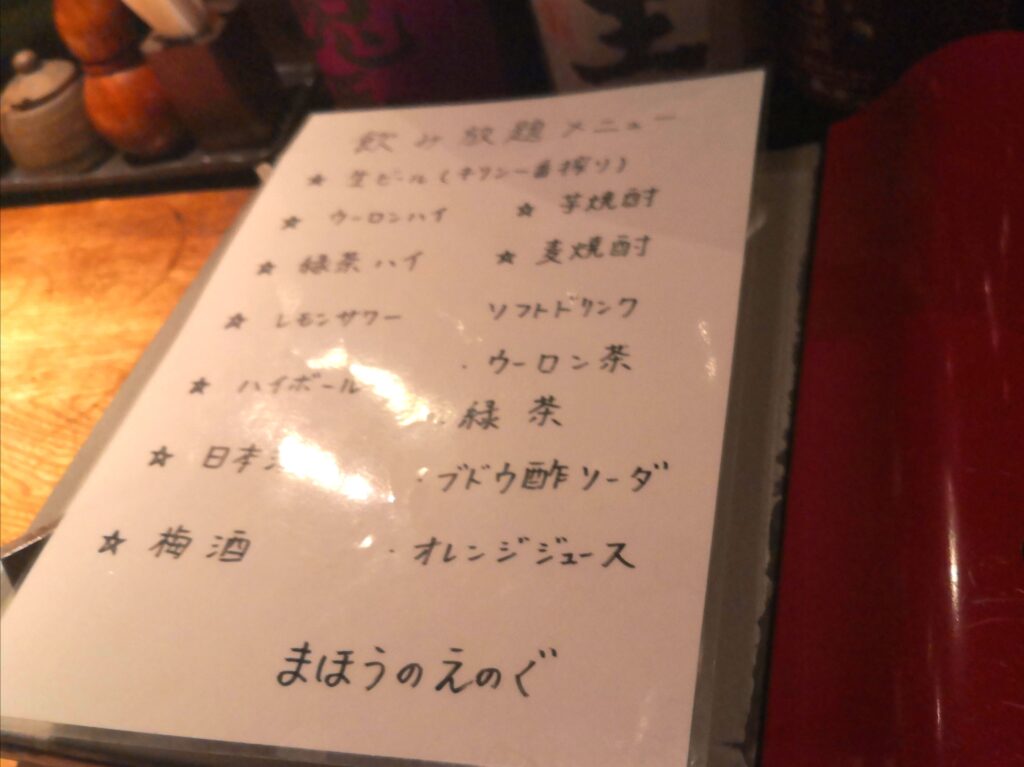 飲み放題メニュー
★ 生ビール(キリン一番搾り)
★ ウーロンハイ ★ 芋焼酎
★ 緑茶ハイ ★ 麦焼酎
★ レモンサワー ソフトドリンク
・ウーロン茶
★ ハイボール
・緑茶
★ 日本
・ブドウ酢ソーダ
★ 梅酒 ・オレンジジュース
まほうのえのぐ